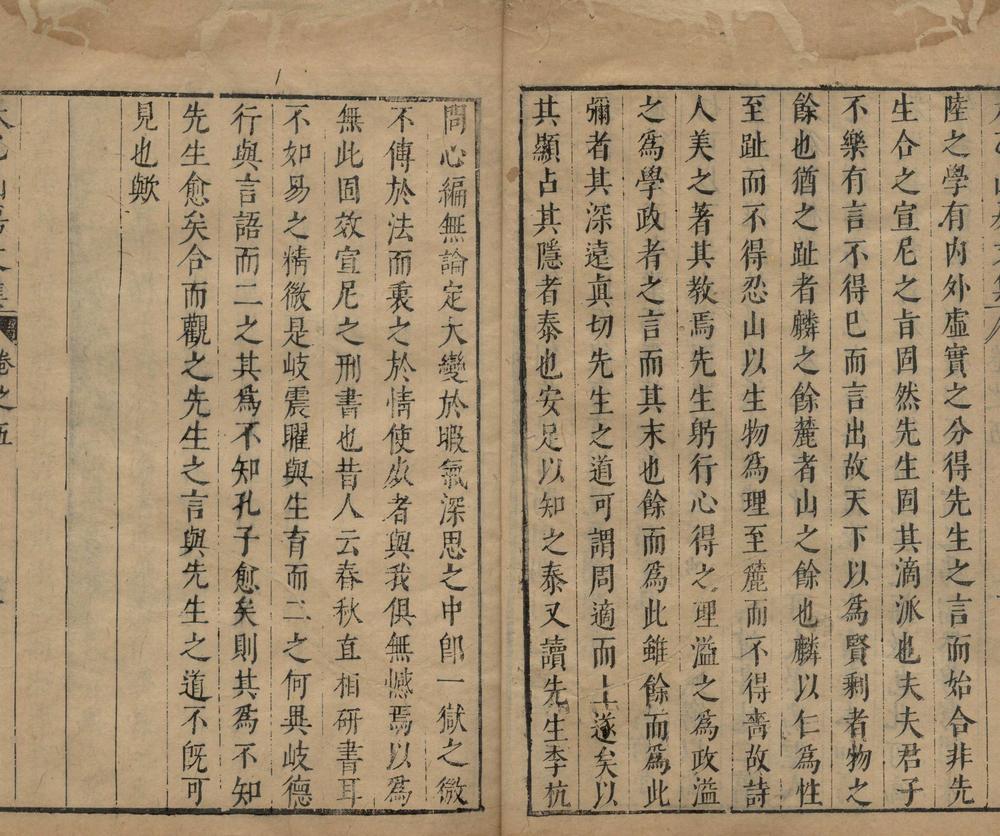 陸之學有内外虛實之分得先生之言而始合非先
生合之宣尼之旨固然先生固其滴派也夫夫君子
不樂有言不得已而言出故天下以爲賢剩者物之
餘也猶之趾者麟之餘麓者山之餘也麟以仁爲性
至趾而不得忍山以生物爲理至麓而不得嗇故詩
人美之著其教焉先生躬行心得之理溢之為政溢
之爲學政者之言而其末也餘而爲此雖餘而爲此
彌者其深遠真切先生之道可謂周適而上遂矣以
其顯占其隱者泰也安足以知之泰又讀先生李杭
問心編無論定大變於暇氣深思之中即一獄之微
不傳於法而裏之於情使處者與我俱無憾焉以爲
無此固效宣尼之刑書也昔人云春秋直相研書耳
不如易之精微是岐震曜與生育而二之何異岐德
行與言語而二之其爲不知孔子愈矣則其爲不知
先生愈矣合而觀之先生之言與先生之道不既可
見也歟
卷之五